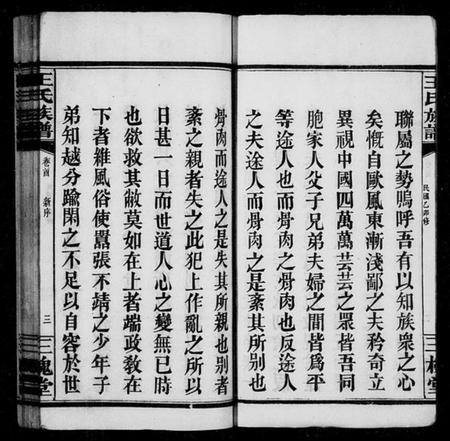 王氏族譜
民國乙卯修
三槐堂
聯屬之勢嗚呼吾有以知族衆之心
矣慨自歐風東漸淺鄙之夫矜奇立
異視中國四萬萬芸芸之眾皆吾同
胞家人父子兄弟夫婦之間皆爲平
等途人也而骨肉之骨肉也反途人
之夫途人而骨肉之是紊其所別也
骨肉而途人之是失其所親也別者
紊之親者失之此犯上作亂之所以
日甚一日而世道人心之變無已時
也欲救其敝莫如在上者端政敎在
下者維風俗使囂張不靖之少年子
弟知越分踰閑之不足以自容於世
王氏族譜
卷首 新序
三
三槐堂